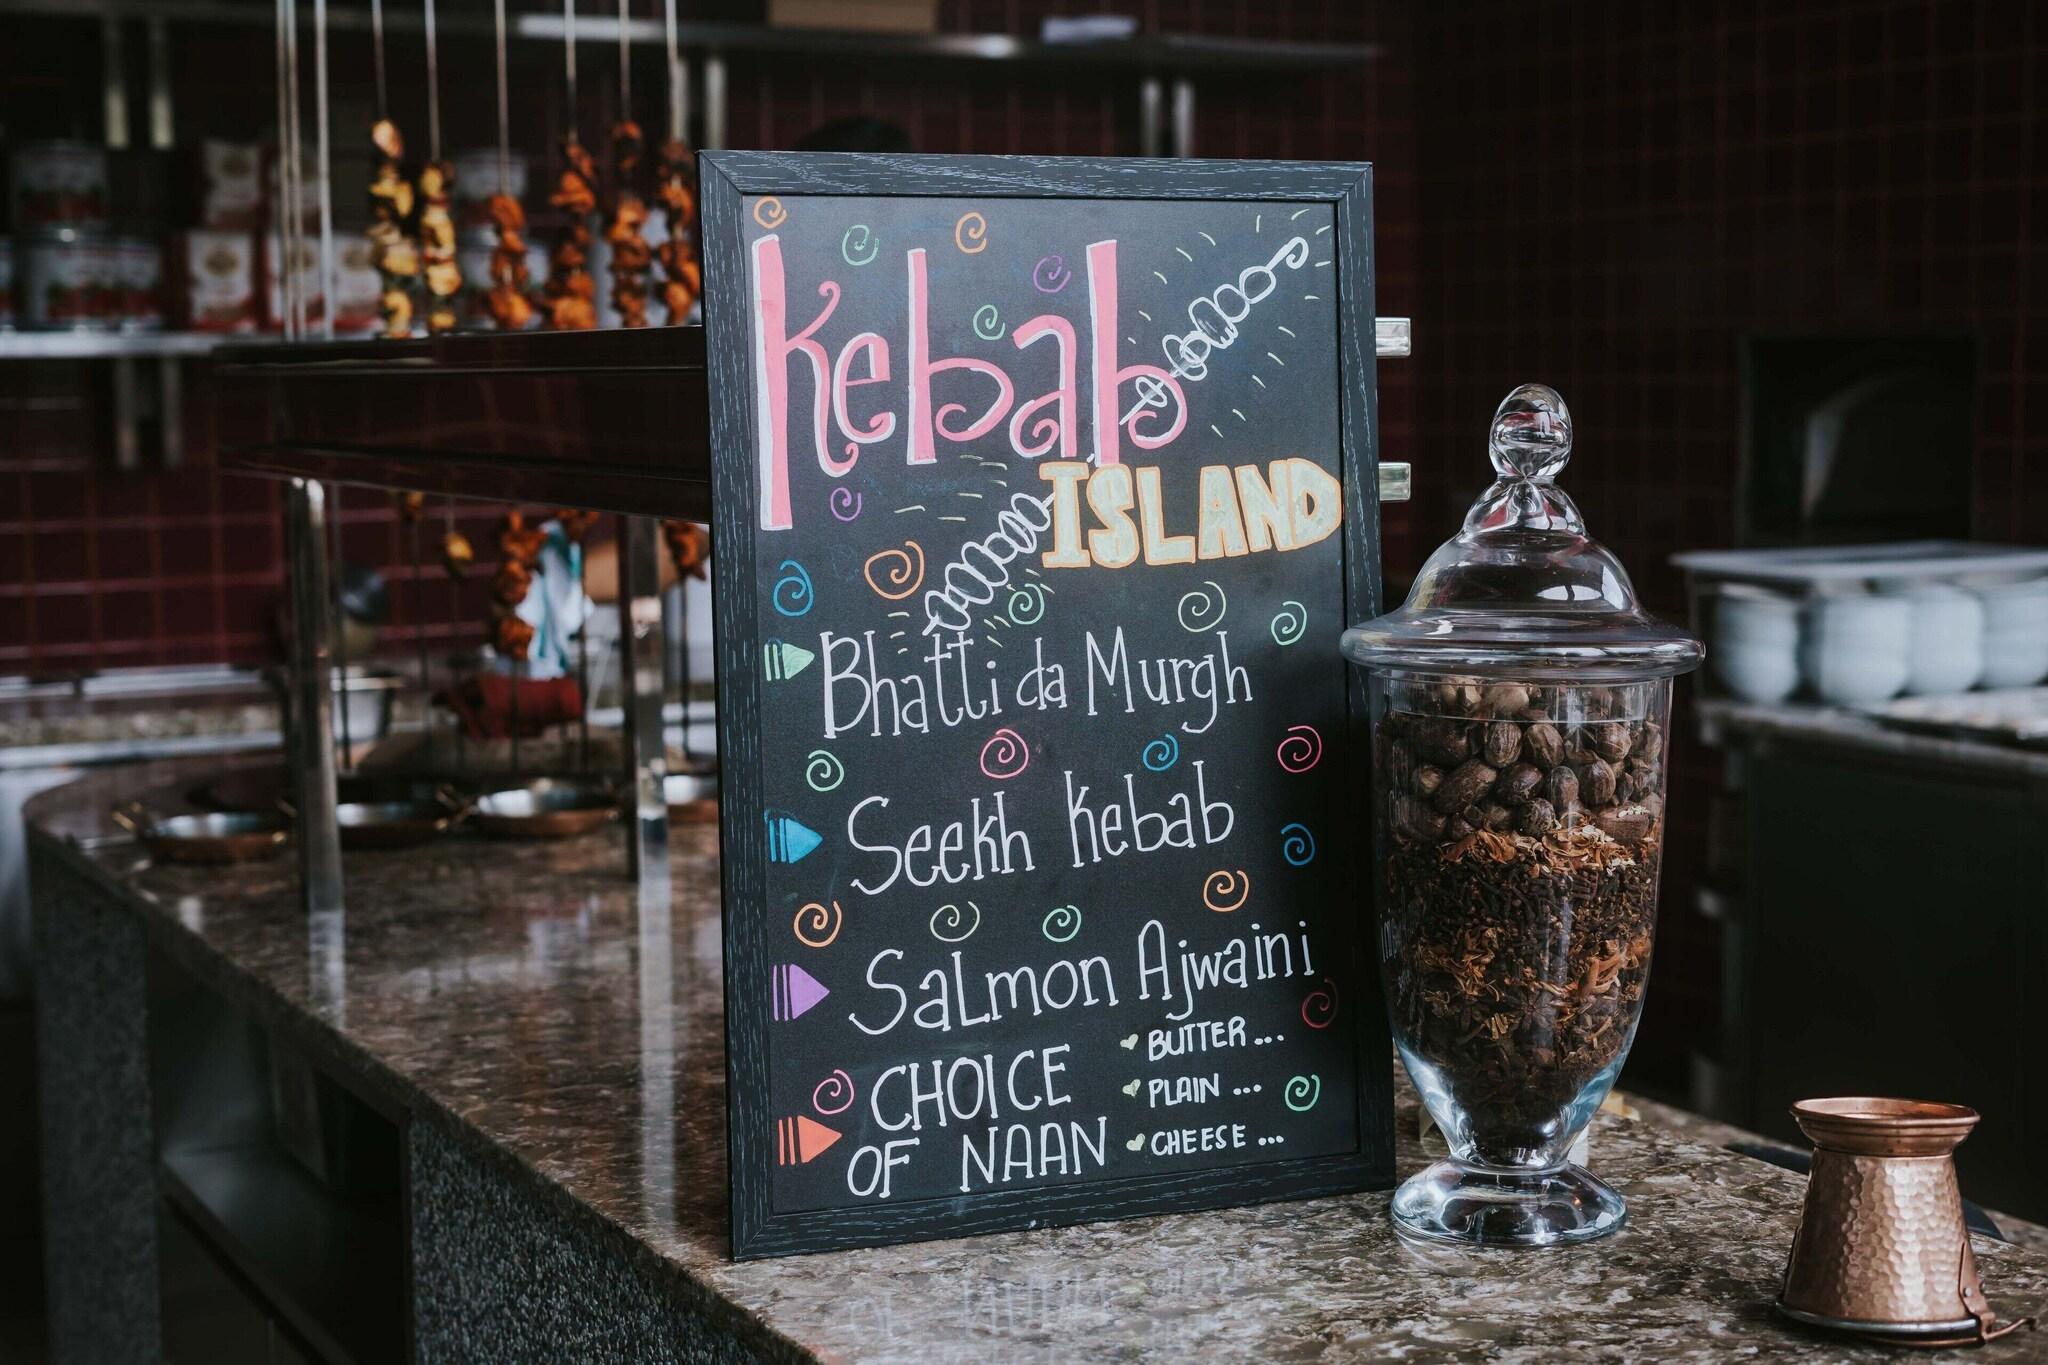 Kebab
ISLAND
Bhatti da Murgh
Seekh Kebab
Salmon Ajwaini
CHOICE
OF NAAN
BUTTER...
PLAIN ...
CHEESE ...